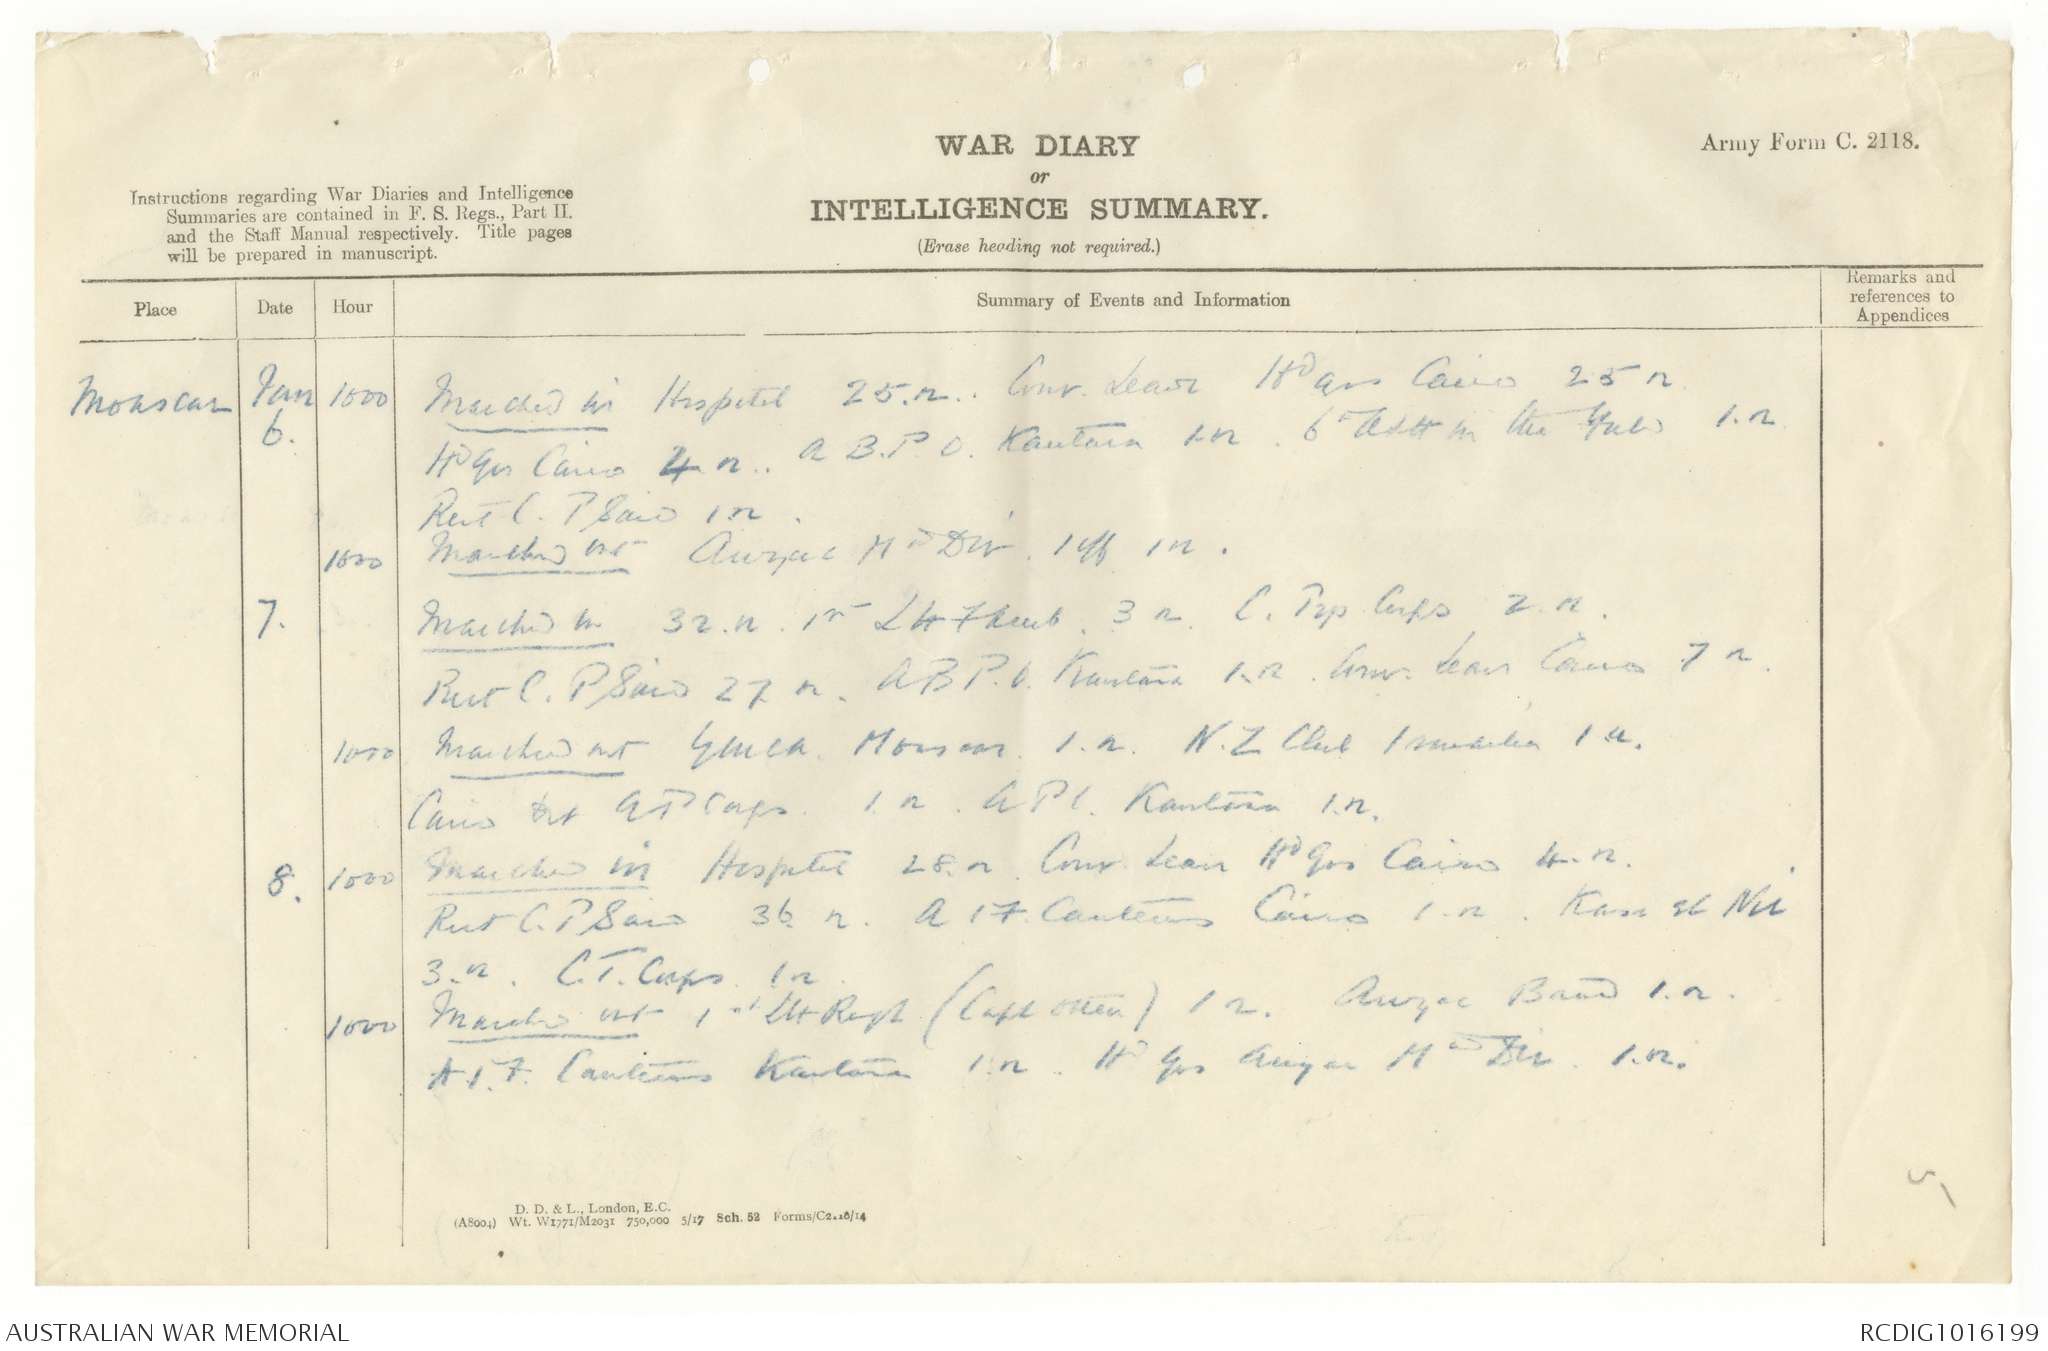 WAR DIARY
or
INTELLIGENCE SUMMARY.
(Erase heading not required.)
Army Form C. 2118.
Instructions regarding War Diaries and Intelligence
Summaries are contained in F. S. Regs., Part II.
and the Staff Manual respectively. Title pages
will be prepared in manuscript.
Place Date Hour Summary of Events and Information Remarks and references to Appendices
Moascar Jan 6. 1000 Marched in Hospital 25.n. Conv. Leave Hd Qrs Cairo 25 n.
Hd Qrs Cairo 4 n. A B.P.O. Kantara 1.n. in the 1.n.
Rest C. P Said 1 n.
1000 Marched out Anzac Md Div. 1 off 1 n.
7. Marched in 32.n. 1st LH 3 n. C. Trp Corps 2.n.
Rest C. P Said 27 n. A B P.O. Kantara 1.n. Conv. Leave Cairo 7 n.
1000 Marched out YMCA. Moascar. 1.n. N.Z Club Ismailia 1 n.
Cairo Corps. 1 n. Kantara 1.n.
8. 1000 Marched in Hospital 28.n. Conv. Leave Hd Qrs Cairo 4.n.
Rest C. P Said 36 n. A I F. Canteens Cairo 1.n. Kasr el Nil
3.n. C.T. Corps. 1 n.
1000 Marched out 1st LH Regt (Capt ) 1 n. Anzac Band 1.n.
A I.F. Canteens Kantara 1.n. Hd Qrs Anzac Md Div. 1.n.
5
D. D. & L., London, E.C.
(A8004) Wt. W1771/M2031 750,000 5/17 Sch. 52 Forms/C2118/14
AUSTRALIAN WAR MEMORIAL
RCDIG1016199